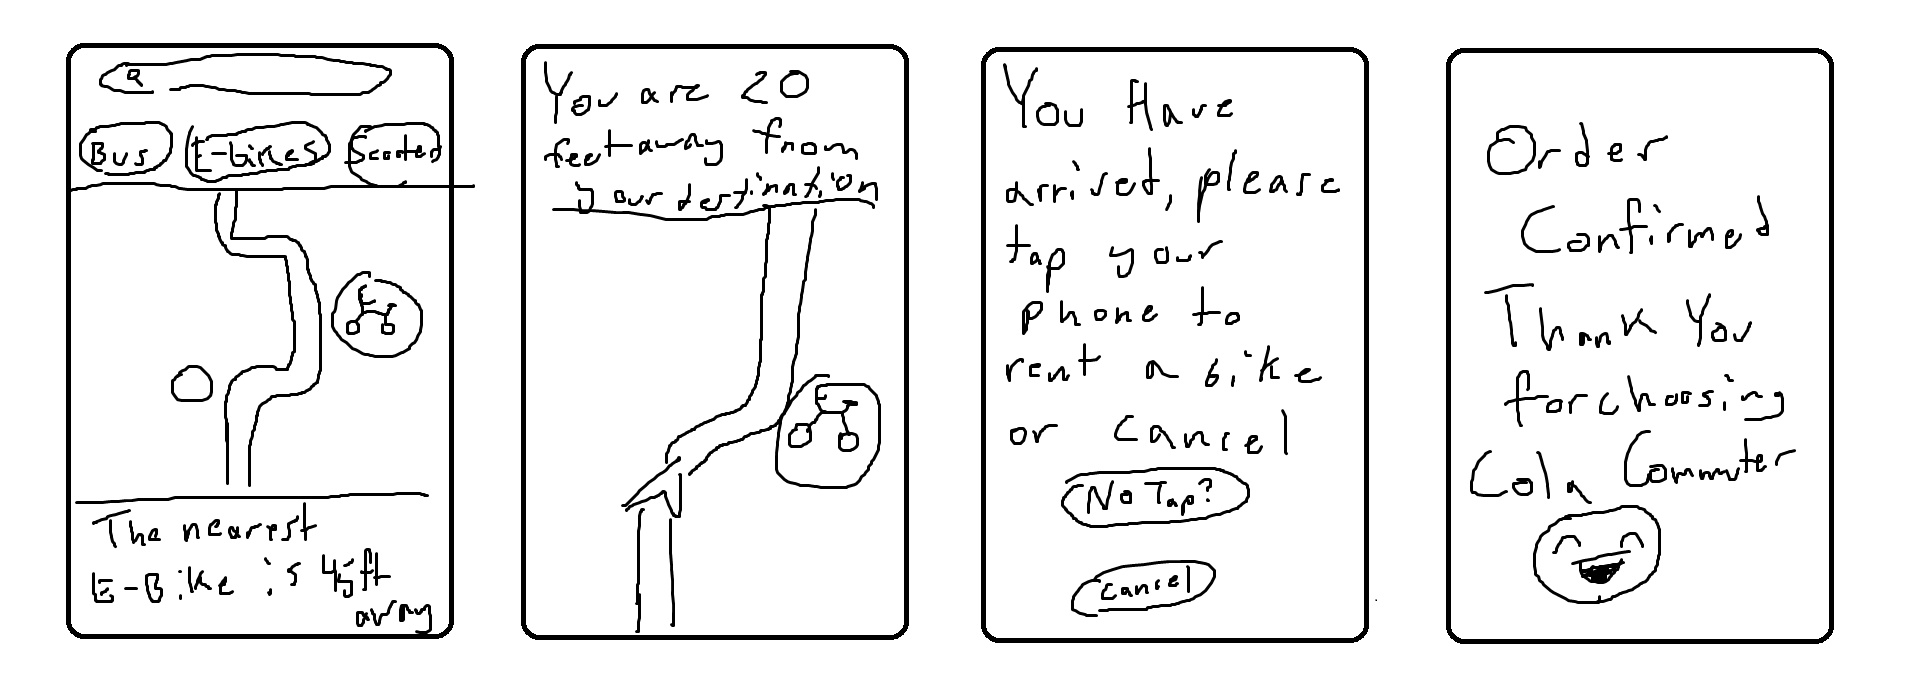 Bus
E-bikes
Scooter
The nearest
E-Bike is 45ft
away
You are 20
feet away from
your destination
E
You Have
arrived, please
tap your
phone to
rent a bike
or cancel
No Tap?
Cancel
Order
Confirmed
Thank You
for choosing
Cola Commuter